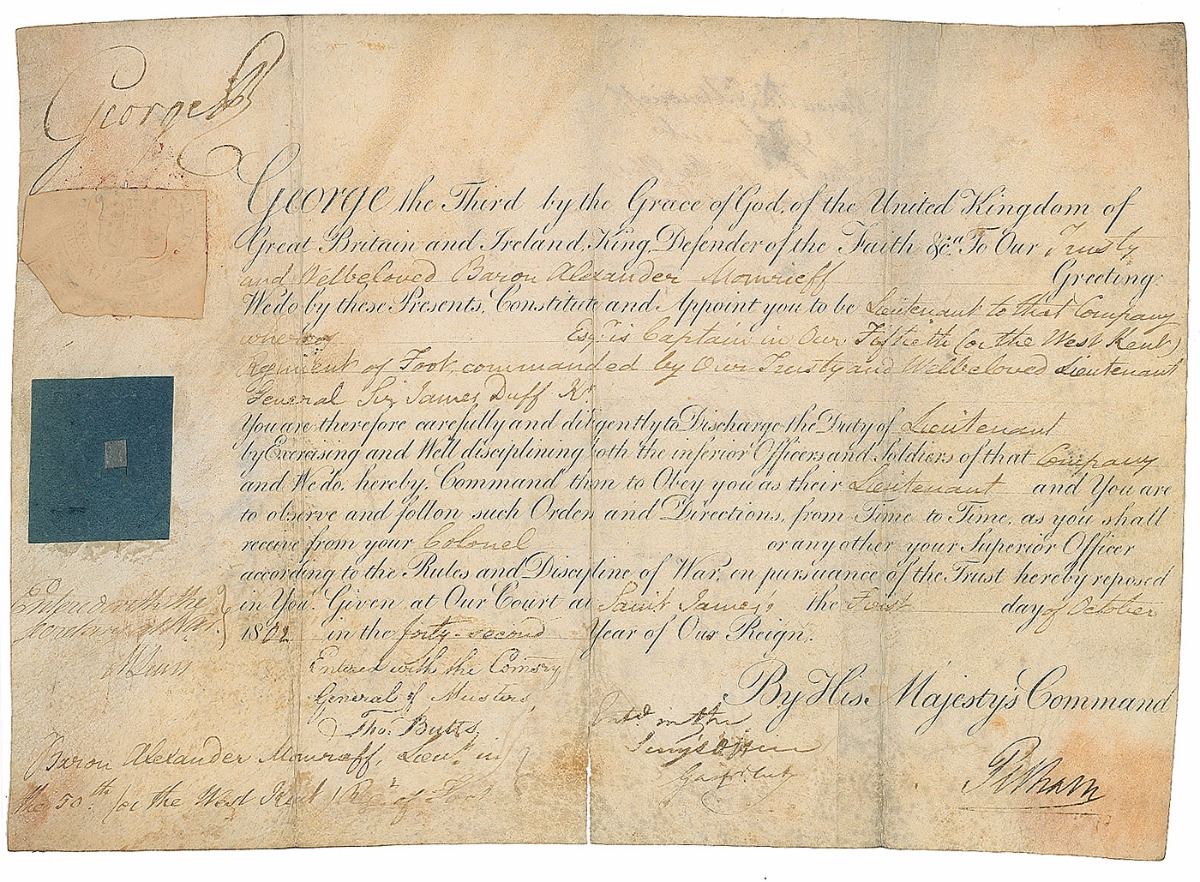 George R
George the Third by the Grace of God, of the United Kingdom of
Great Britain and Ireland King, Defender of the Faith &c.a To Our Trusty
and Welbeloved Baron Alexander Moncrieff Greeting:
We do by these Presents, Constitute and Appoint you to be Lieutenant to that Company
whereof Esq.r is Captain in Our Fiftieth (or the West Kent)
Regiment of Foot, commanded by Our Trusty and Welbeloved Lieutenant
General Sir James Duff K.t
You are therefore carefully and diligently to Discharge the Duty of Lieutenant
by Exercising and Well disciplining both the inferior Officers and Soldiers of that Company
and We do hereby Command them to Obey you as their Lieutenant and You are
to observe and follow such Orders and Directions, from Time to Time, as you shall
receive from your Colonel or any other your Superior Officer
according to the Rules and Discipline of War, in pursuance of the Trust hereby reposed
in You. Given at Our Court at Saint James's the First day of October
1802 in the forty-second Year of Our Reign.
By His Majesty's Command
Pelham
Entered with the
Secretary at War
Entered with the Comsry
General of Musters,
Tho.s Butts
Baron Alexander Moncrieff, Lieu.t in
the 50.th (or the West Kent) Reg.t of Foot